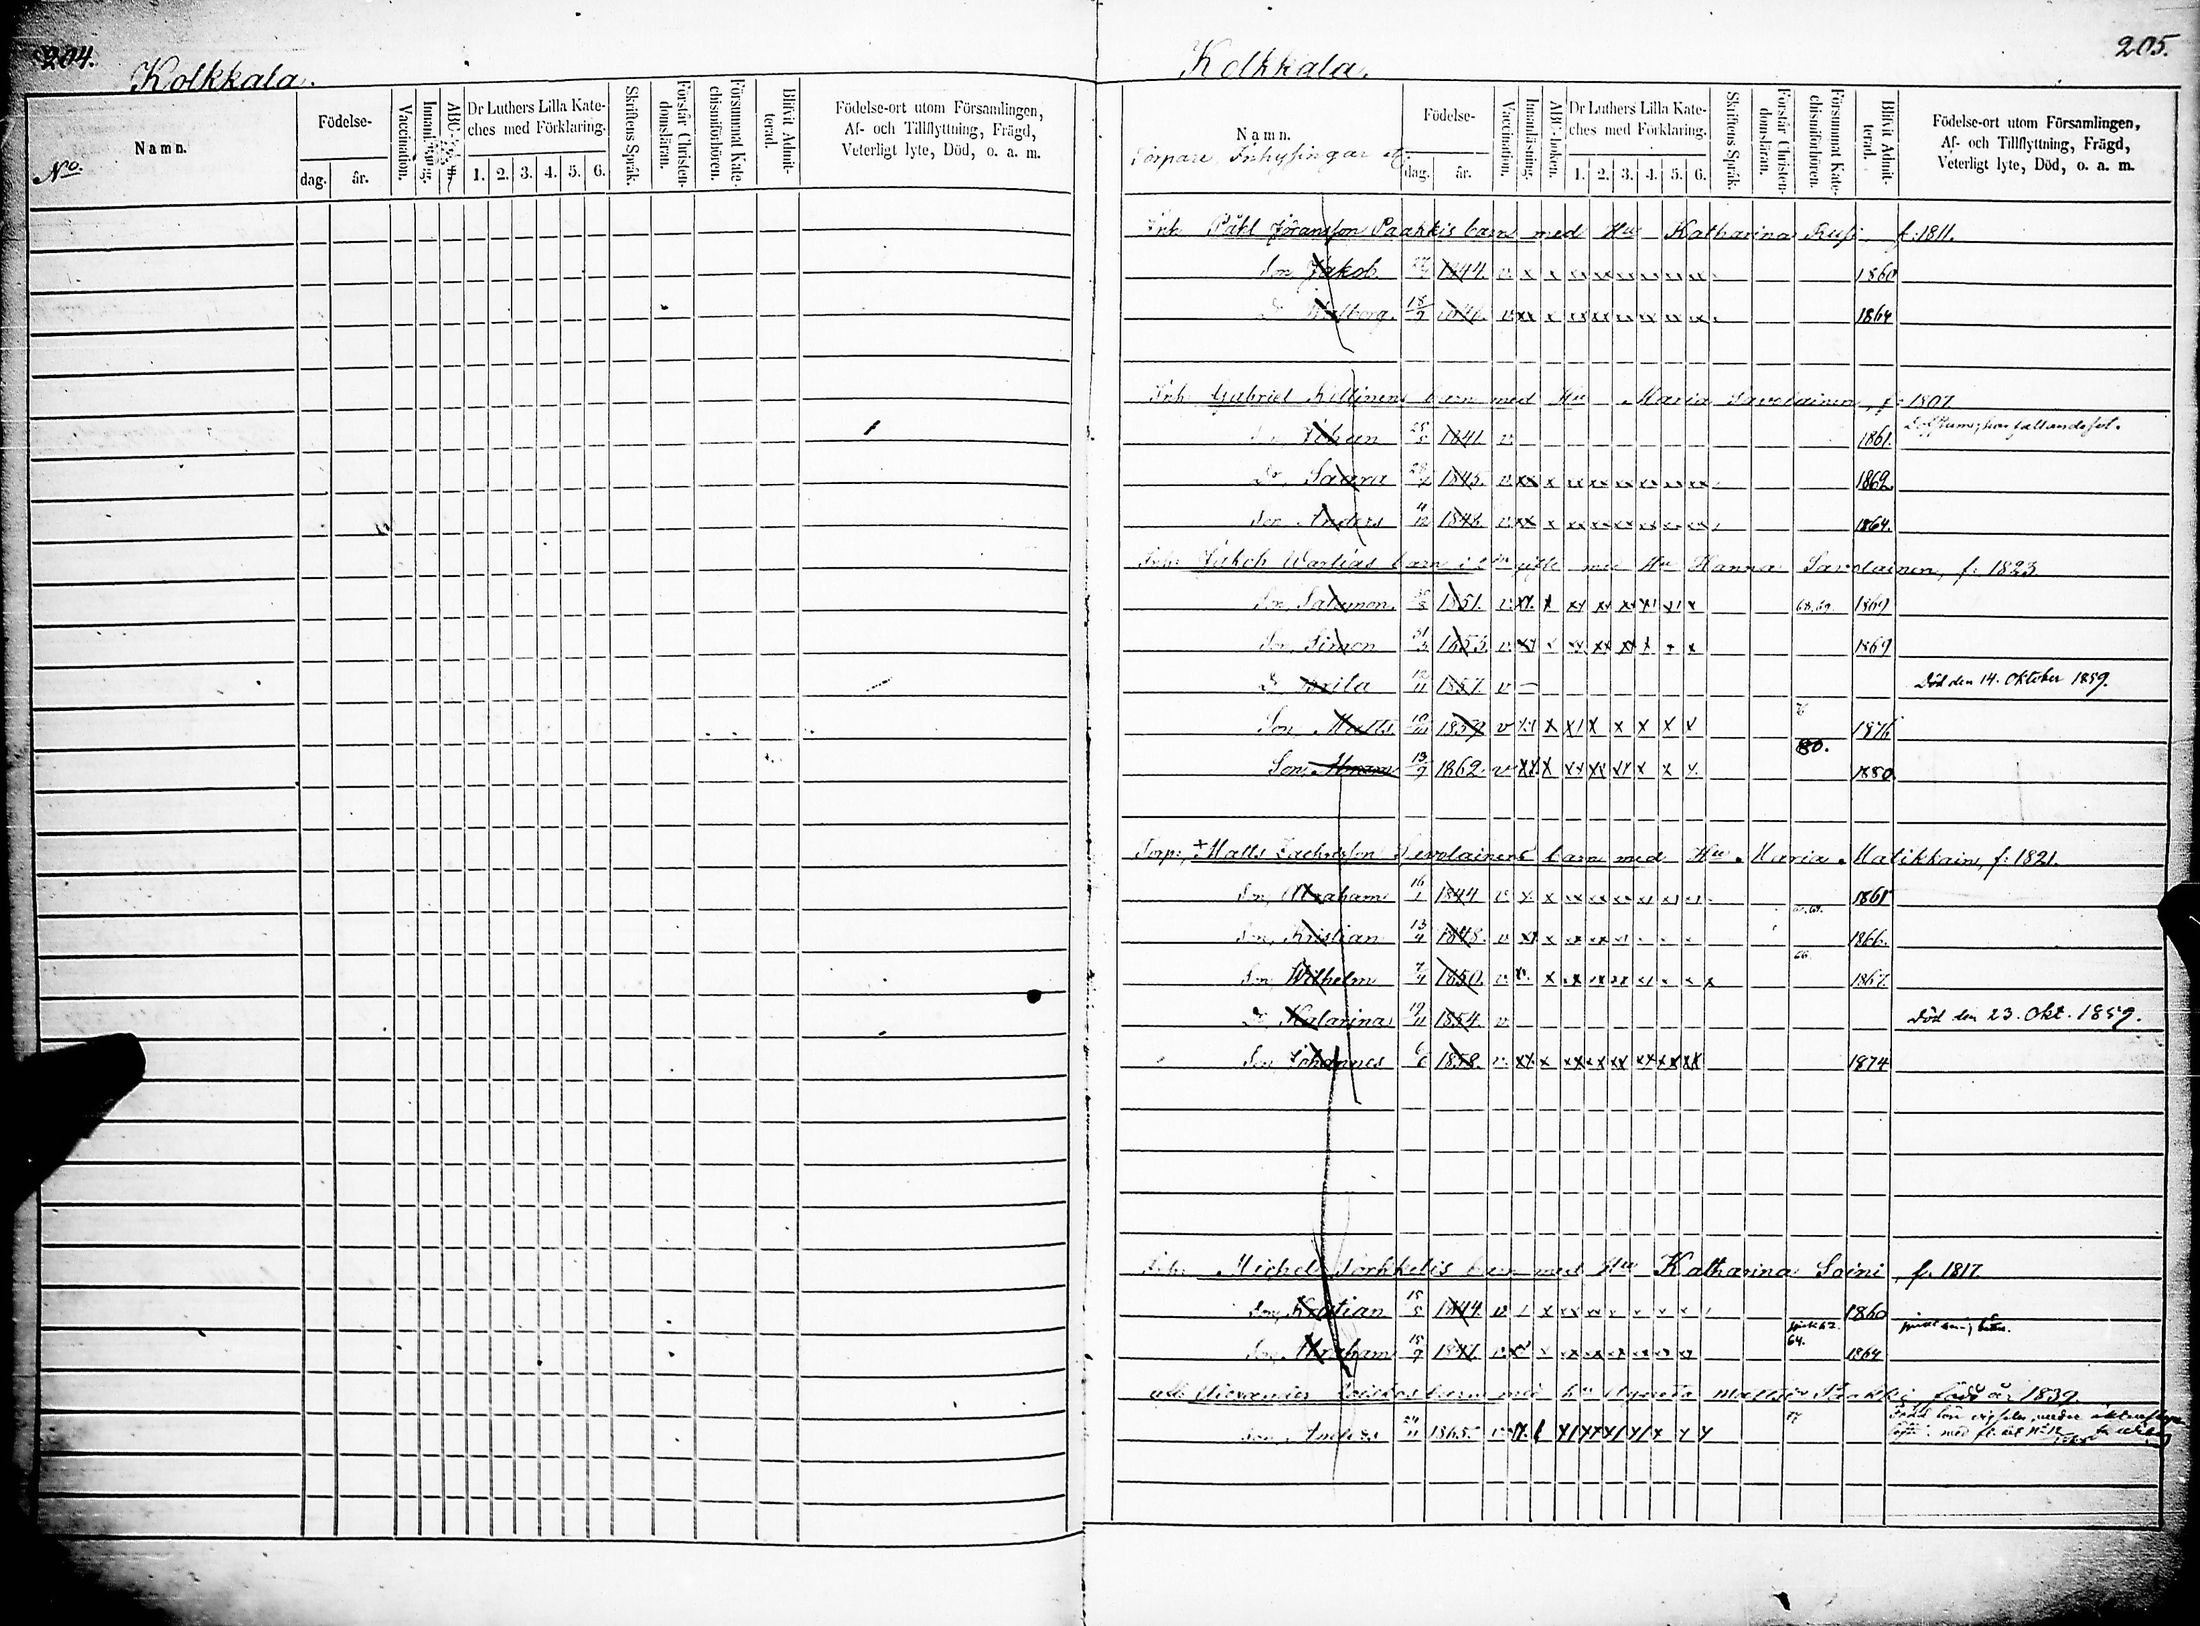 204.
Kolkkala.
No. Namn. Födelse- dag. år. Vaccination. Innanläsning. ABC- Dr Luthers Lilla Kate-ches med Förklaring. 1. 2. 3. 4. 5. 6. Skriftens Språk. Förstår Christen-domsläran. Försummat Kate-chismiförhören. Blifvit Admit-terad. Födelse-ort utom Församlingen, Af- och Tillflyttning, Frägd, Veterligt lyte, Död, o. a. m.
205.
Kolkkala.
Namn. Födelse- dag. år. Vaccination. Innanläsning. ABC-boken. Dr Luthers Lilla Kate-ches med Förklaring. 1. 2. 3. 4. 5. 6. Skriftens Språk. Förstår Christen-domsläran. Försummat Kate-chismiförhören. Blifvit Admit-terad. Födelse-ort utom Församlingen, Af- och Tillflyttning, Frägd, Veterligt lyte, Död, o. a. m.
Torpare Inhysingar etc.
Inh. Påhl Jöransson Paahkis barn med Hu Katharina f. 1811.
Son Jakob 1844. v x x xx xx xx xx xx xx 1860
D. Walborg. 18/9 v xx x xx xx xx xx xx xx 1864
Inh. Gabriel barn med Hu Maria Savolainen, f. 1807.
Johan 1841 v 1861.
Dr. Saara 1845. v xx x xx xx xx xx xx xx 1862
Son Anders 1848. v xx x xx xx xx xx xx xx 1864.
Inh. Jakob Wartias barn i gifte med Hu Hanna Savolainen, f. 1823
Son, Salomon. 1851. v xx. x xx xx xx xx xx x 68.69 1869
Son, Simon 1853 v xx x xx xx xx x x x 1869
D Brita 12/11 1857. v — Död den 14. Oktober 1859.
Son Matts 1859 v xx x xx x x x x 1876
Son, Abram 13/9 1862. v xx x xx xx xx x x x 80. 1880
Torp. + Matts Zachrisson Sevolainens barn med Hu. Maria Matikkain, f. 1821.
Son, Abraham 16/1 1844. v x x xx xx xx xx xx xx 1861
Son, Kristian 13/4 1848. v xx x xx xx xx 1866.
Son, Wilhelm 7/4 1850. v x x xx xx xx xx x x x 66. 1867.
D. Katarina 19/11 1854. v Död den 23. Okt. 1859.
Son, Johannes 6/6 1858. v xx x xx xx xx xx xx xx 1874
Inh. Michel Torkkelis barn med Hu Katharina Soini, f. 1817.
Son, Kristian 15/5 1844. v x xx xx x x x x 1860
Son, Abraham 15/9 v x x xx xx xx xx xx xx 64. 1864
Alexander barn med hu Agneta Mattsdr född år 1839.
Son, Anders 24/11 1865. v xx 77